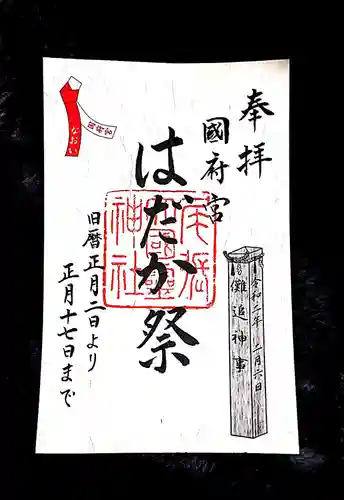 奉拝
國府宮
はだか祭
旧暦正月二日より
正月十七日まで
儺追神事
令和二年 二月六日
なおい
尾張
大國霊
神社